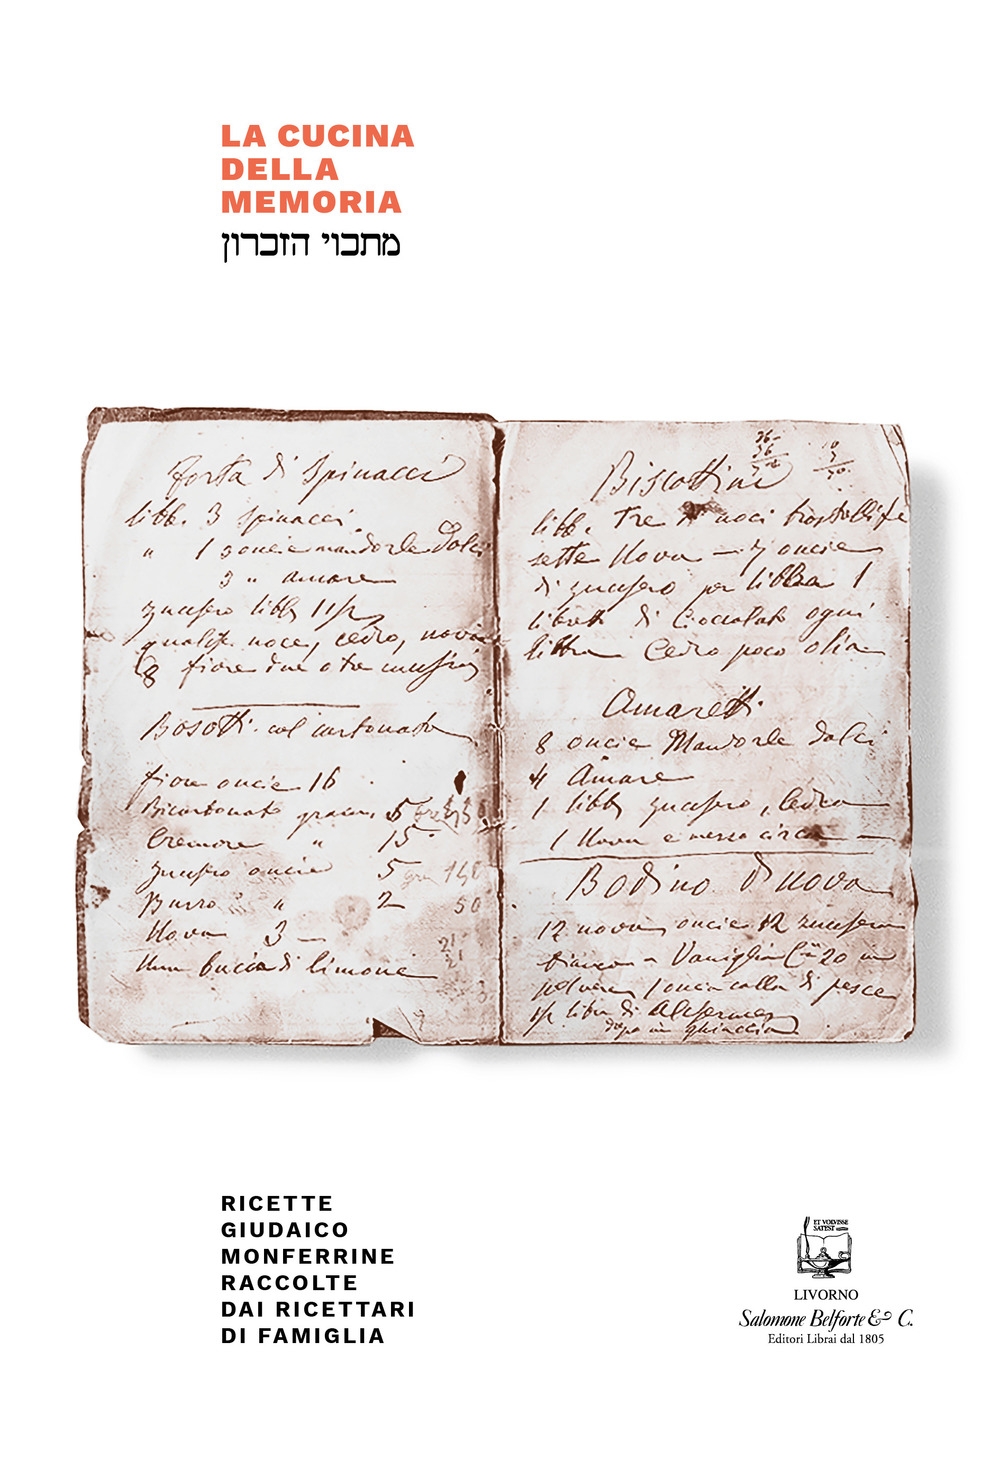 LA CUCINA
DELLA
MEMORIA
מתכוי הזכרון
Torta di Spinacci
libb. 3 Spinacci
" 1 3 oncie mandorle dolci
3 " amare
zucchero libb 1 1/2
qualche noce, cedro, nova
8 fiore due o tre
Bosotti col
fiore oncie 16
Bicarbonato grammi 5
Cremore " 15
Zucchero oncie 5
Burro " 2 50
Nova 3 —
Una buccia di limone
36
Biscottini
libb. Tre di noci
sette Nova — 7 oncie
di zucchero per libbra 1
di Cioccolato ogni
libbra Cedro poco olio
Amaretti
8 oncie Mandorle dolci
4 Amare
1 libb zucchero, Cedro
1 Nova e mezzo circa —
Bodino di nova
12 nova, oncie 12 zucchero
bianco Vaniglia 20 in
polvere, 1 oncia colla di pesce
1/2 libra di Alchermes
dopo in ghiaccio
RICETTE
GIUDAICO
MONFERRINE
RACCOLTE
DAI RICETTARI
DI FAMIGLIA
ET VOLVISSE
SATEST
LIVORNO
Salomone Belforte & C.
Editori Librai dal 1805